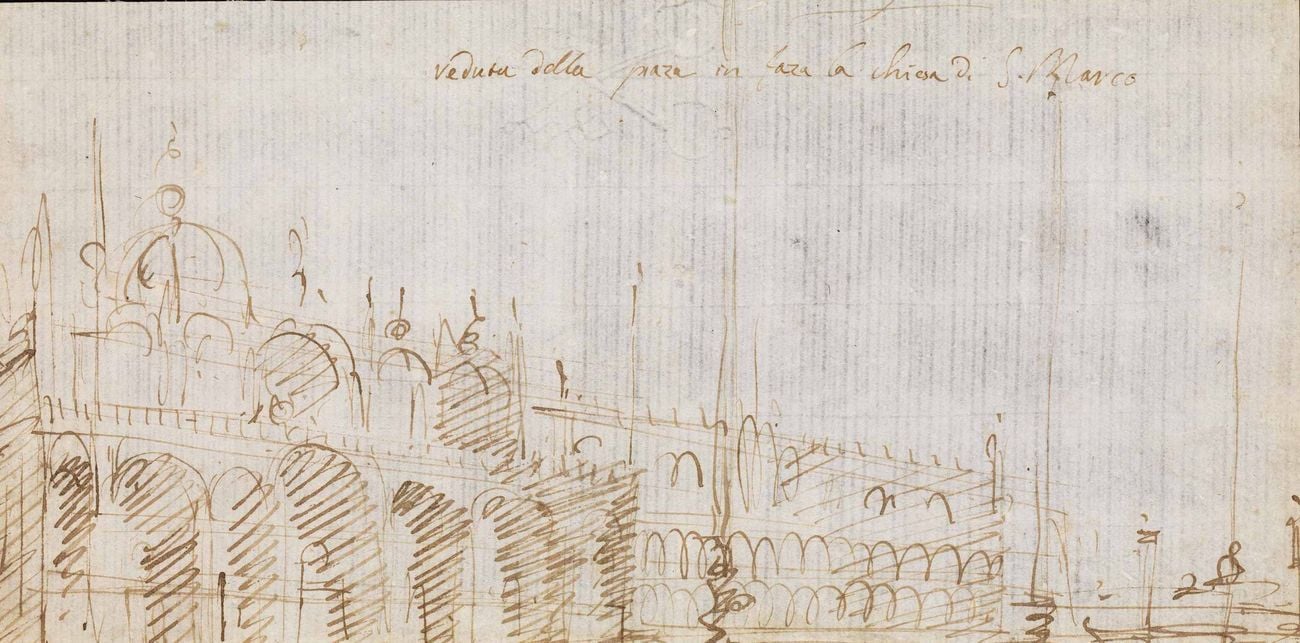 veduta della piaza in faza la chiesa di S. Marco